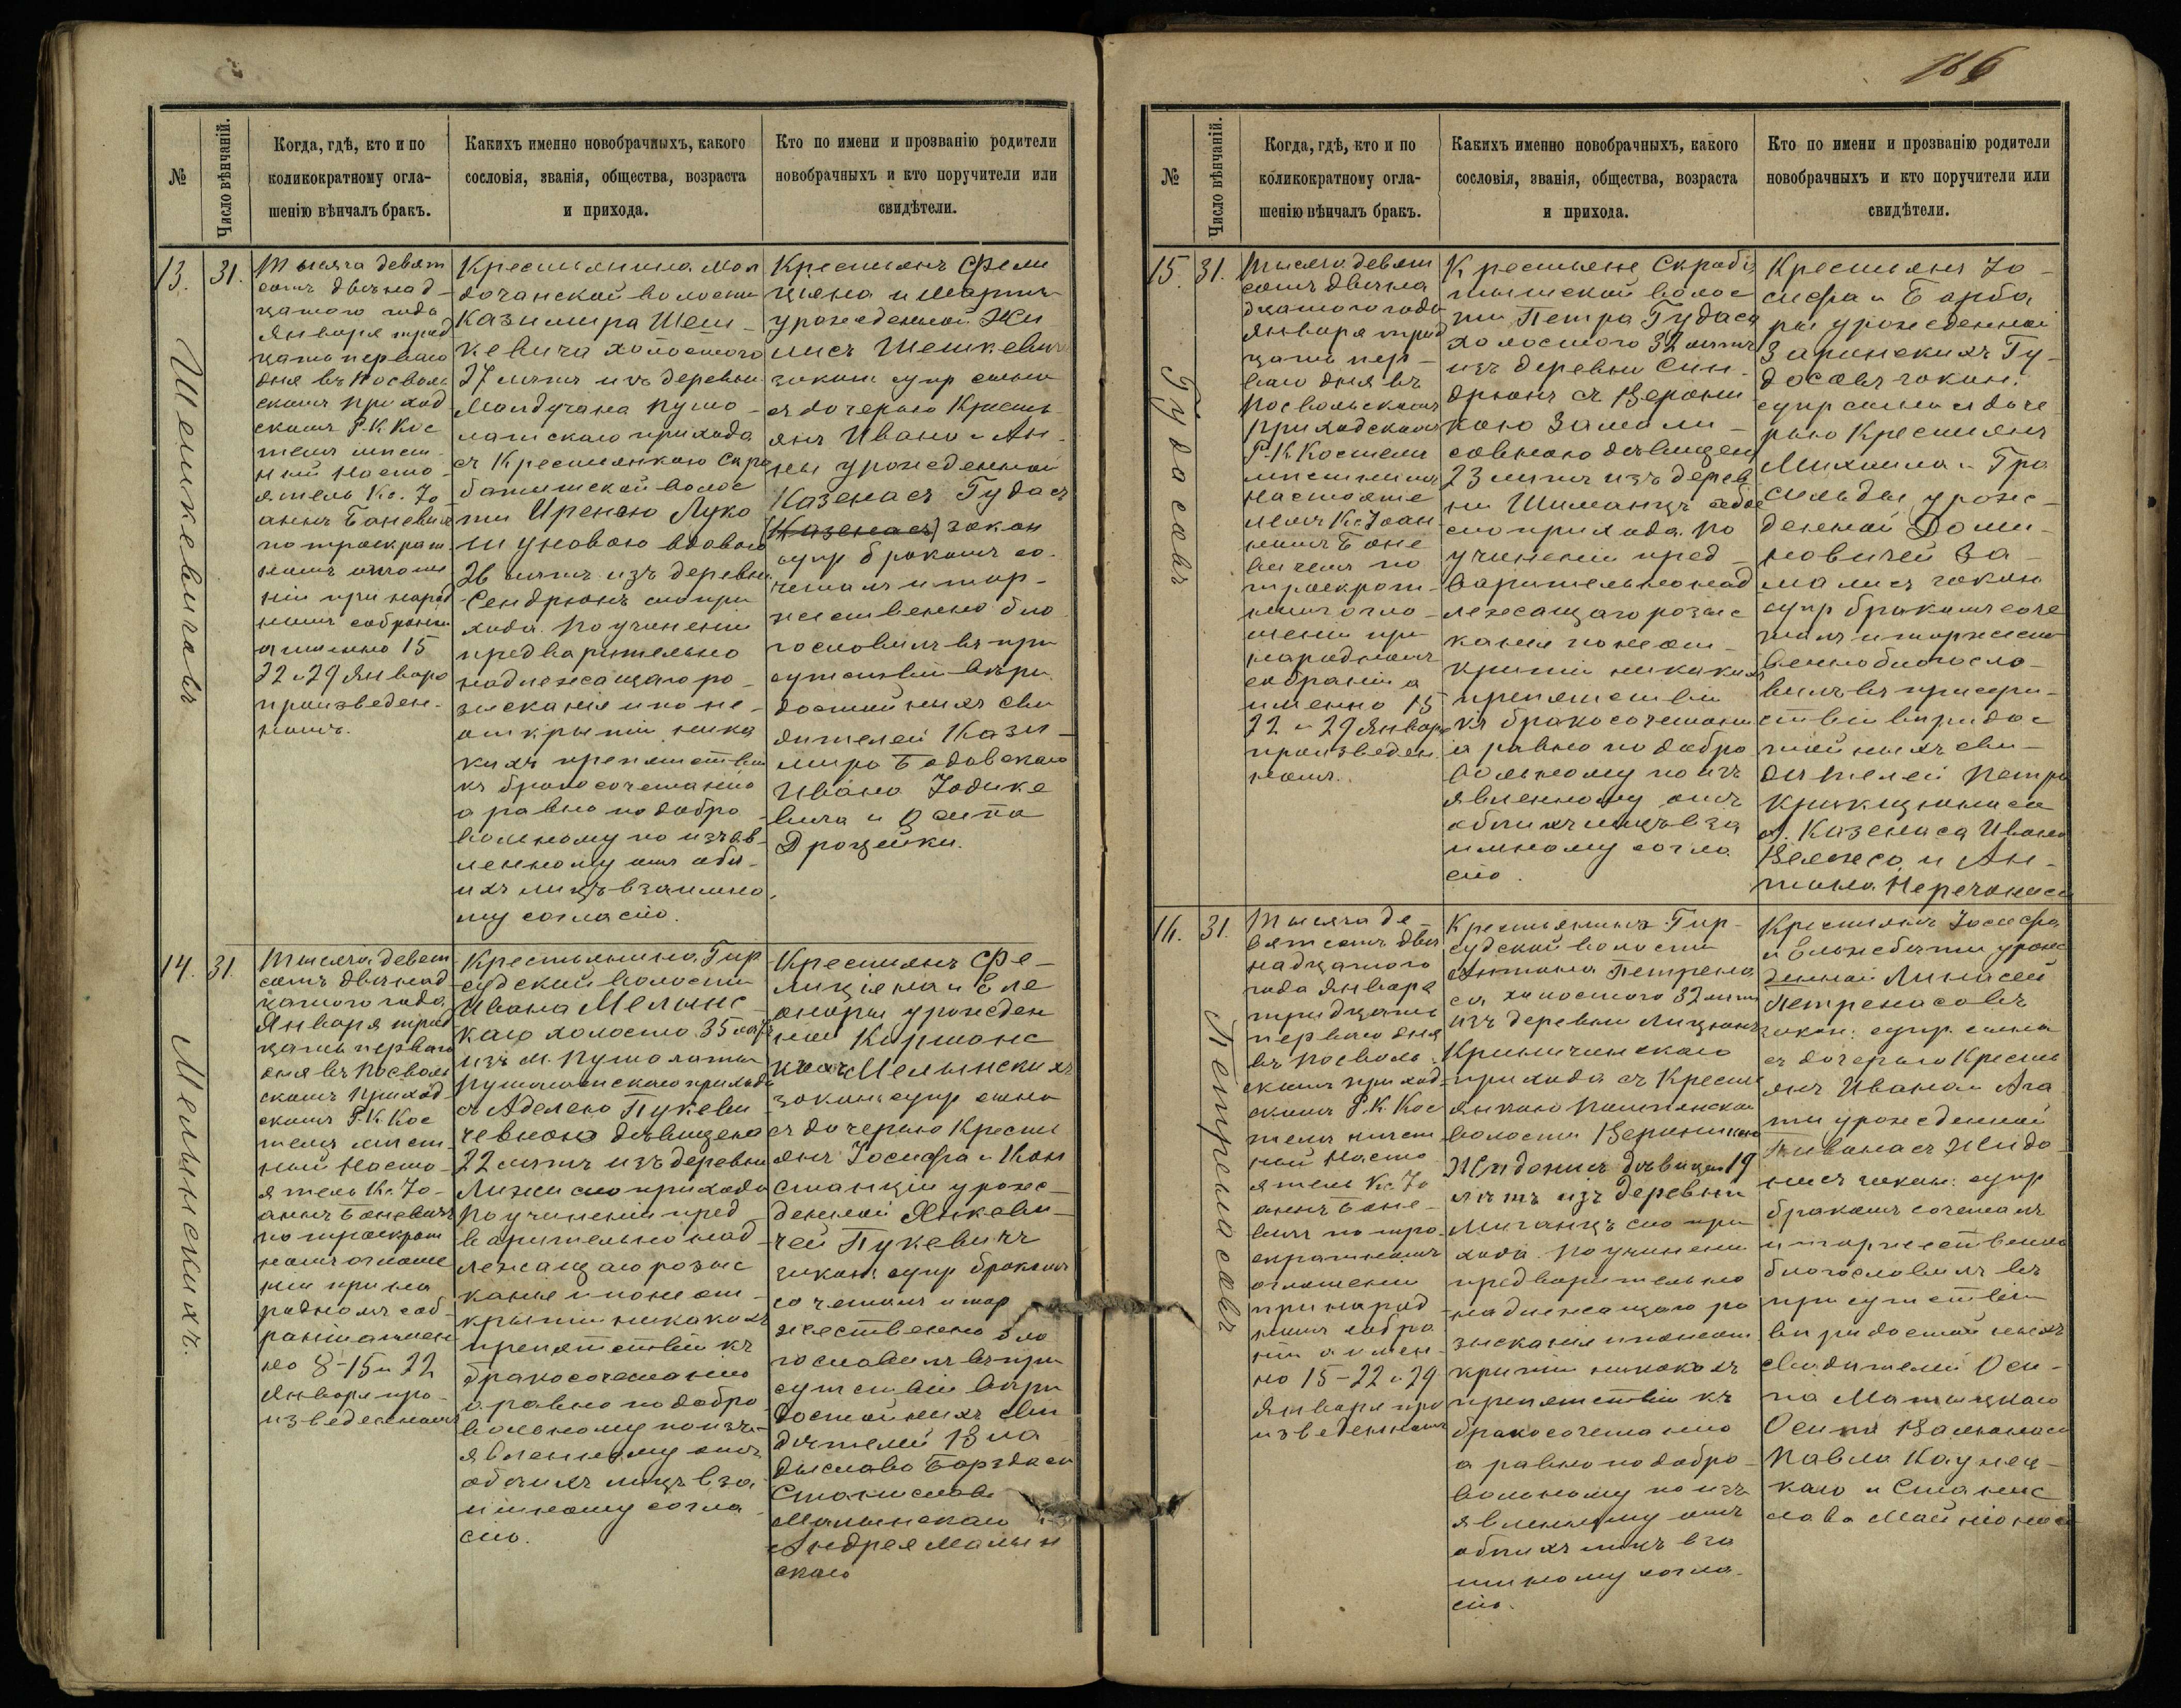 166
№
Число вѣнчаній.
Когда, гдѣ, кто и по
коликократному огла-
шенію вѣнчалъ бракъ.
Какихъ именно новобрачныхъ, какого
сословія, званія, общества, возраста
и прихода.
Кто по имени и прозванію родители
новобрачныхъ и кто поручители или
свидѣтели.
13.
31.
Шешкевичовъ
Тысяча девят
сотъ двѣнад-
цатого года
Января трид
цать перваго
дня въ Посволь
скомъ приход
скомъ Р.К. Кос
телѣ мѣст-
ный Насто-
ятель Кс. Іо
аннъ Баневичъ
по троекрат
номъ оглаше
ніи при народ
номъ собраніи
а именно 15
22 и 29 Января
произведен-
номъ.
Крестьянина
дочанской волости
Казимира Шеш-
кевича холостого
27 лѣтъ изъ деревни
Пумпо-
латскаго прихода
съ Крестьянкою Скро
батишской волос
ти Иреною Луко
шуновою вдовою
26 лѣтъ изъ деревни
Сендрюнъ сего при
хода. По учиненіи
предварительно
надлежащаго ро-
зысканія и по не-
открытіи ника
кихъ препятствій
къ бракосочетанію
а равно по добро
вольному по изъяв-
ленному отъ обо-
ихъ лицъ взаимно
му согласію.
Крестьянъ Фели
ціана и Марты
урожденной Жи
лисъ Шешкевич
закон. супр сына
съ дочерью Кресть
янъ Ивана и Ан
ны урожденной
Казенасъ Гудасъ
(Казенасъ) закон
супр бракомъ со-
четалъ и тор-
жественно бла
гословилъ въ при
сутствіи вѣри
достойныхъ сви
дѣтелей Кази-
мира Бодовскаго
Ивана Іодике
вича и Осипа
Дроцейки.
14.
31.
Мелынскихъ.
Тысяча девят
сотъ двѣнад
цатого года
Января трид
цать перваго
дня въ Посволь
скомъ приход
скомъ Р.К. Кос
телѣ мѣст
ный Насто-
ятель Кс. Іо-
аннъ Баневичъ
по троекрат
номъ оглаше
ніи при на
родномъ соб-
раніи а имен
но 8-15 и 22
Января про-
изведенномъ
Крестьянина Гир
судской волости
Ивана Мелынс
каго холосто. 35 лѣтъ
изъ м. Пумполаты
Пумполатскаго прихода
съ Аделею Пукеви
чевною дѣвицею
22 лѣтъ изъ деревни
сего прихода
По учиненіи пред
варительно над-
лежащаго розыс
канія и по неот-
крытіи никакихъ
препятствій къ
бракосочетанію
а равно по добро
вольному по изъ-
явленному отъ
обоихъ лицъ вза
имному согла
сію.
Крестьянъ Фе-
лиціана и Еле
оноры урожден
ной
Мелынскихъ
закон. супр сына
съ дочерью Кресть
янъ Іосифа и Кон
станціи урож-
денной Янкеви-
чей Пукевичъ
закон. супр бракомъ
сочеталъ и тор
жественно бла
гословилъ въ при
сутствіи вѣри
достойныхъ сви
дѣтелей Вла
дыслава
Станислава
Малынскаго
Андрея Малын
скаго
15.
31.
Гудасовъ
Тысяча девят
сотъ двѣна
дцатого года
Января трид
цать пер-
ваго дня въ
Посвольскомъ
приходскомъ
Р.К. Костелѣ
мѣстнымъ
настояте
лемъ Кс. Іоан
номъ Бане
вичемъ по
троекрат-
номъ огла-
шеніи при
народномъ
собраніи а
именно 15
22 и 29 Января
произведен-
номъ.
Крестьяне Скробо
тышской волос
ти Петра Гудаса
холостого 32 лѣтъ
изъ деревни Син-
дрюнъ съ Верони
кою Замали-
совною дѣвицею
23 лѣтъ изъ дерев
ни Шиманцъ обое
сего прихода. По
учиненіи пред-
варительно над
лежащаго розыс
канія по неот-
крытіи никакихъ
препятствій
къ бракосочетанію
а равно по добро
вольному по изъ
явленному отъ
обоихъ лицъ вза
имному согла
сію.
Крестьянъ Іо-
сифа и Барба
ры урожденной
Заринскихъ Гу-
досовъ закон.
супр сына и доче
рью Крестьянъ
Михаила и Гра
сильды урож-
денной Доми-
новичей За-
малисъ закон
супр бракомъ соче
талъ и торжест
венно благосло-
вилъ въ присут-
ствіи вѣридос
тойныхъ сви-
дѣтелей Петра
Казенаса Ивана
и Ан-
16.
31.
Петренасовъ
Тысяча де-
вятсотъ двѣ
надцатого
года Января
тридцать
перваго дня
въ Посволь
скомъ приход-
скомъ Р.К. Кос
телѣ мѣст
ный Насто
ятель Кс. Іо
аннъ Бане-
вичъ по тро-
екратномъ
оглашеніи
при народ
номъ собра
ніи а имен-
но 15-22 и 29
Января про
изведенномъ
Крестьянина Гир-
судской волости
Антона Петрена
са холостого 32 лѣтъ
изъ деревни
Криничинскаго
прихода съ Кресть
янкою
волости Вероникою
Жидонисъ дѣвицею 19
лѣтъ изъ деревни
сего при
хода. По учиненіи
предварительно
надлежащаго ро
зысканія и по неот
крытіи никакихъ
препятствій къ
бракосочетанію
а равно по добро-
вольному по изъ
явленному отъ
обоихъ лицъ вза
имному согла-
сію.
Крестьянъ Іосифа
и Ельжбеты урож
денной
Петренасовъ
закон: супр. сына
съ дочерью Кресть
янъ Ивана и Ага
ты урожденной
Пивонасъ Жидо
нисъ закон: супр
бракомъ сочеталъ
и торжественно
благословилъ въ
присутствіи
вѣридостойныхъ
свидѣтелей Оси-
па
Осипа
Павла Каунец-
каго и Станис
лава